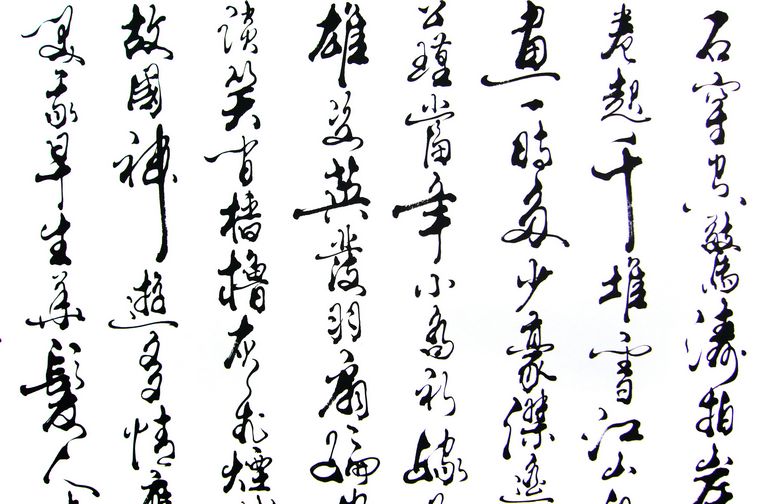 石穿空驚濤拍岸
卷起千堆雪江山
畫一時多少豪傑遙
公瑾當年小喬初嫁
雄姿英發羽扇綸
談笑間檣櫓灰飛煙
故國神遊多情應
笑我早生華髮人